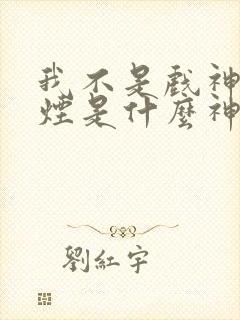 我不是戲神
煙是什麼神
劉紅宇